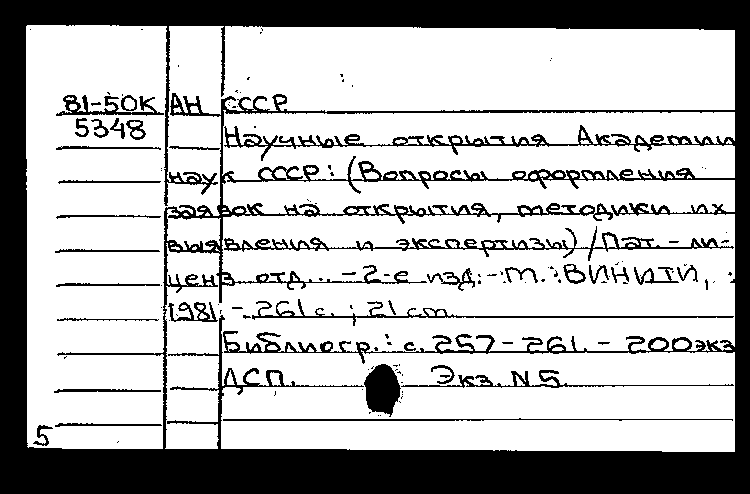 81-50К АН СССР
5348 Научные открытия Академии
наук СССР: (Вопросы оформления
заявок на открытия, методики их
выявления и экспертизы) / Пат.-ли-
ценз отд... - 2-е изд. - М.: ВИНИТИ,
1981. - 261 с.; 21 cm
Библиогр.: с. 257-261. - 200 экз
ДСП. Экз. N 5.
5